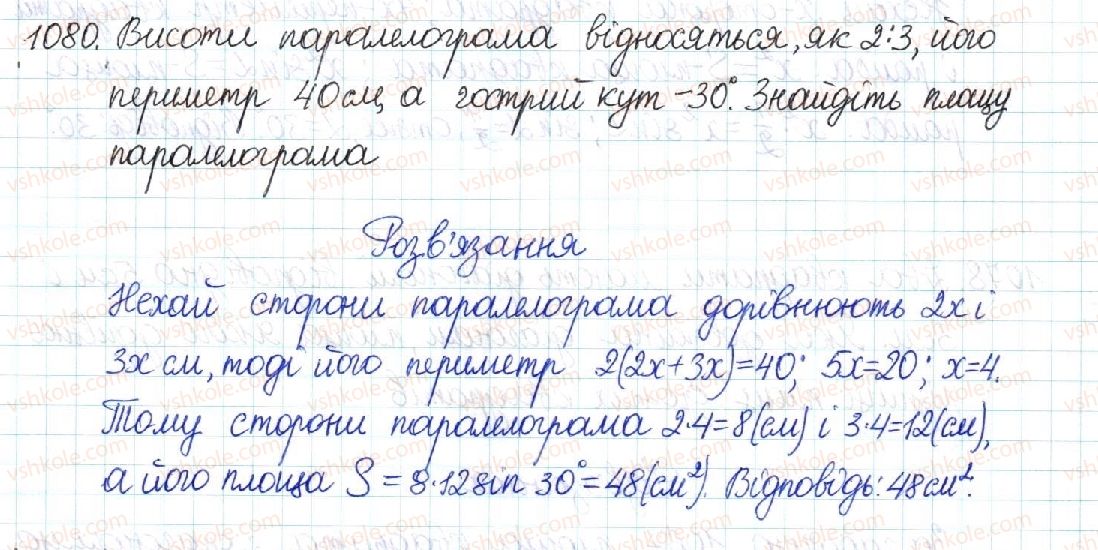 1080. Висоти паралелограма відносяться, як 2:3, його
периметр 40 см, а гострий кут - 30°. Знайдіть площу
паралелограма
Розв'язання
Нехай сторони паралелограма дорівнюють 2x і
3x см, тоді його периметр 2(2x+3x)=40; 5x=20; x=4.
Тому сторони паралелограма 2·4=8(см) і 3·4=12(см),
а його площа S=8·12sin 30°=48(см²). Відповідь: 48см².